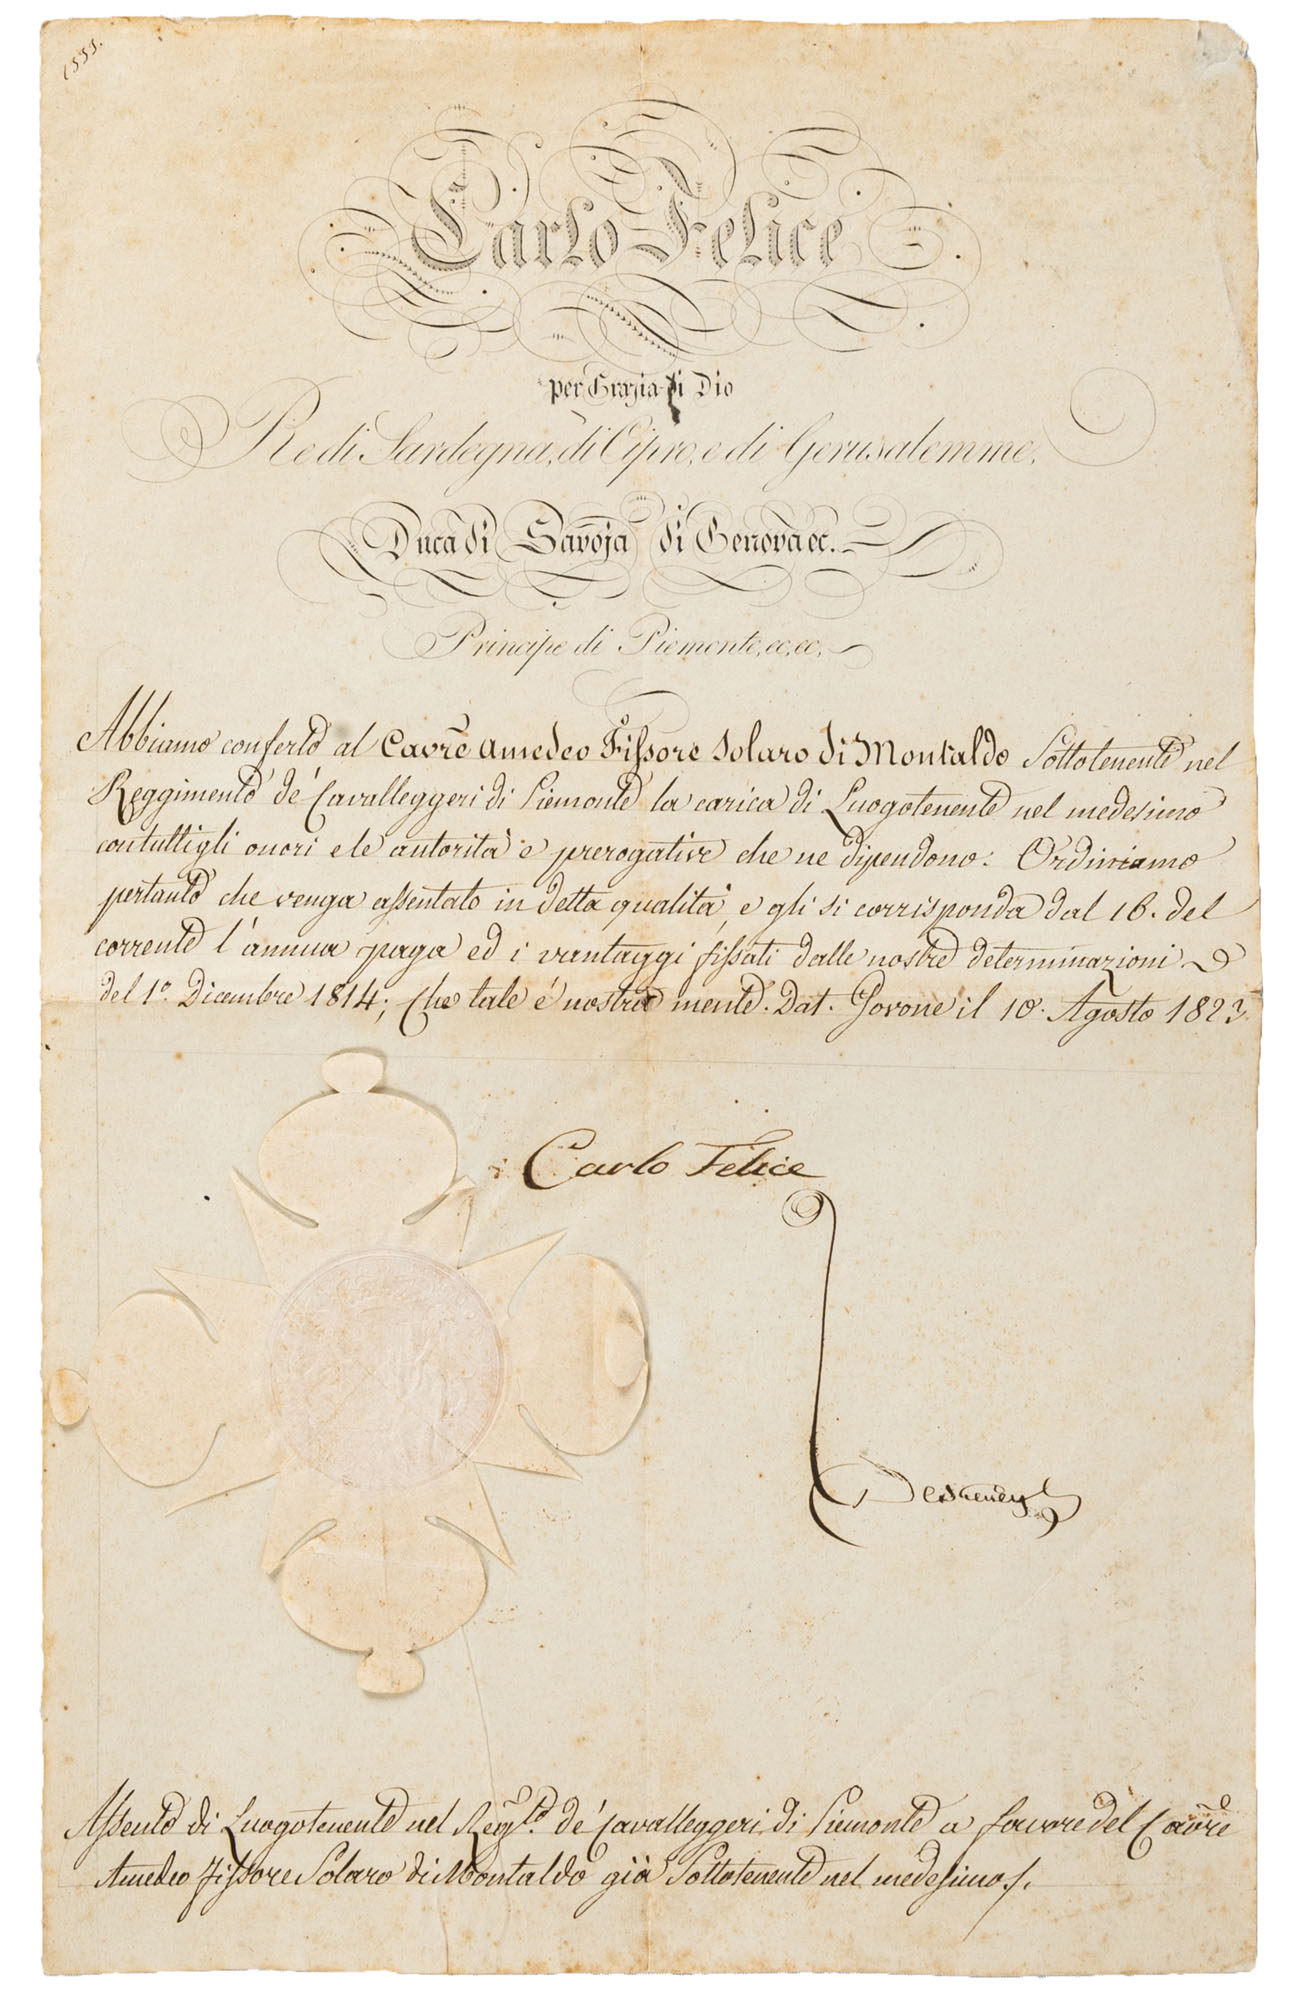 1555.
Carlo Felice
per Grazia di Dio
Re di Sardegna, di Cipro, e di Gerusalemme,
Duca di Savoja di Genova ec.
Principe di Piemonte, ec, ec,
Abbiamo conferto al Cavre Amedeo Fissore Solaro di Montaldo Sottotenente nel
Reggimento de' Cavalleggeri di Piemonte la carica di Luogotenente nel medesimo
con tutti gli onori e le autorità e prerogative che ne dipendono. Ordiniamo
pertanto che venga assentato in detta qualità, e gli si corrisponda dal 16. del
corrente l'annua paga ed i vantaggi fissati dalle nostre determinazioni
del 1o. Dicembre 1814; Che tale è nostra mente. Dat. Govone il 10. Agosto 1823
Carlo Felice
Assento di Luogotenente nel Regto. de' Cavalleggeri di Piemonte a favore del Cavre
Amedeo Fissore Solaro di Montaldo già Sottotenente nel medesimo.